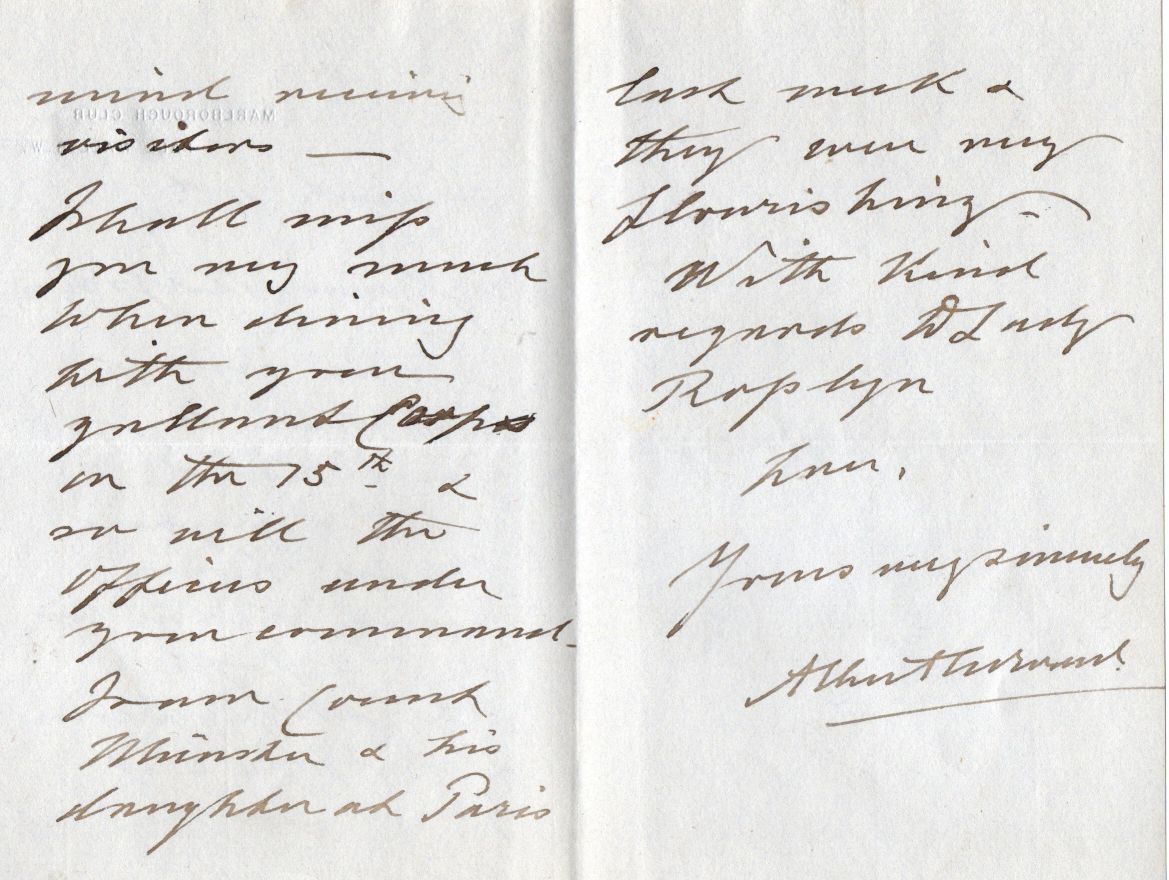 mind receiving
MARLBOROUGH CLUB
visitors —
I shall miss
you very much
when dining
with your
gallant Corps
on the 15th &
so will the
Officers under
your command.
I saw Count
Münster & his
daughter at Paris
last week &
they were very
flourishing –
With kind
regards to Lady
Rosslyn
Yours very sincerely
Albert Edward.